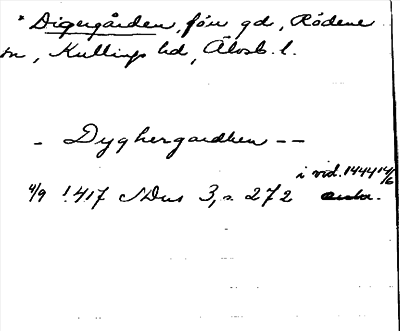 * Digergården, förr gd, Rödene
sn, Kullings hd, Älvsb. l.
– Dyghergardhen – –
i vid. 1444 14/6
4/9 1417 SDns 3, s. 272 avskr.